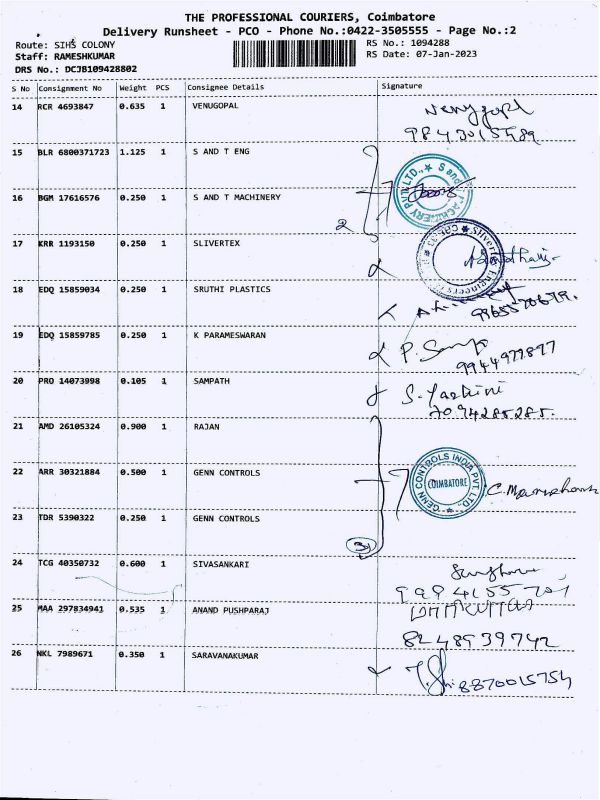 THE PROFESSIONAL COURIERS, Coimbatore
Delivery Runsheet - PCO - Phone No.:0422-3505555 - Page No.:2
Route: SIHS COLONY
RS No.: 1094288
Staff: RAMESHKUMAR
RS Date: 07-Jan-2023
DRS No.: DCJB109428802
S No Consignment No Weight PCS Consignee Details Signature
14 RCR 4693847 0.635 1 VENUGOPAL Venugopal
15 BLR 6800371723 1.125 1 S AND T ENG
16 BGM 17616576 0.250 1 S AND T MACHINERY
2
17 KRR 1193150 0.250 1 SLIVERTEX
18 EDQ 15859034 0.250 1 SRUTHI PLASTICS
19 EDQ 15859785 0.250 1 K PARAMESWARAN
9944977897
20 PRO 14073998 0.105 1 SAMPATH
7094285285.
21 AMD 26105324 0.900 1 RAJAN
22 ARR 30321884 0.500 1 GENN CONTROLS
GENN CONTROLS INDIA PVT. LTD.
COIMBATORE
23 TDR 5390322 0.250 1 GENN CONTROLS
3
24 TCG 40350732 0.600 1 SIVASANKARI
25 MAA 297834941 0.535 1 ANAND PUSHPARAJ
8248939742
26 NKL 7989671 0.350 1 SARAVANAKUMAR
8870015754